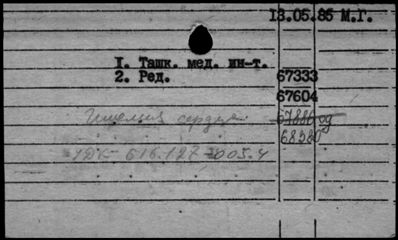 13.05.85 М.Г.
1. Ташк. мед. ин-т.
2. Ред. 67333
67604
Ишемия сердца
68380
УДК 616.127-005.4